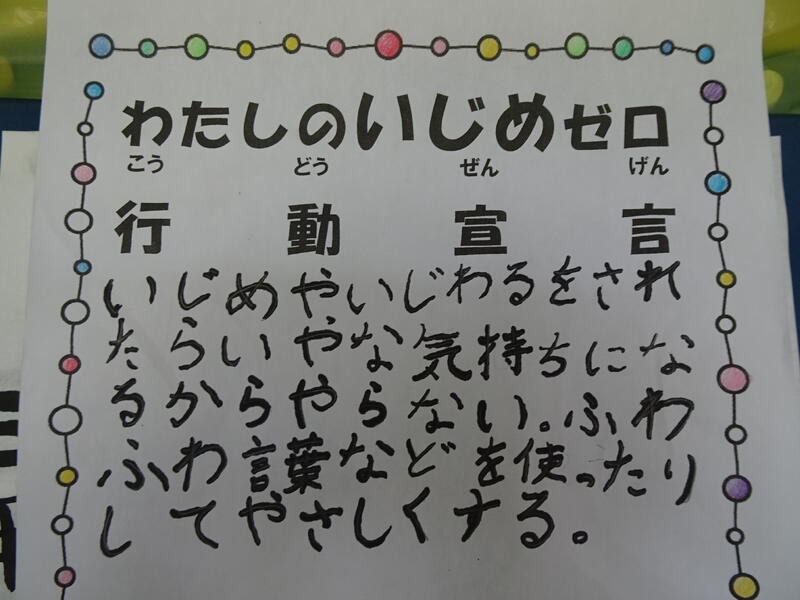 わたしのいじめゼロ
こう どう ぜん げん
行動宣言
いじめやいじわるをされ
たらいやな気持ちにな
るからやらない。ふわ
ふわ言葉などを使ったり
してやさしくする。